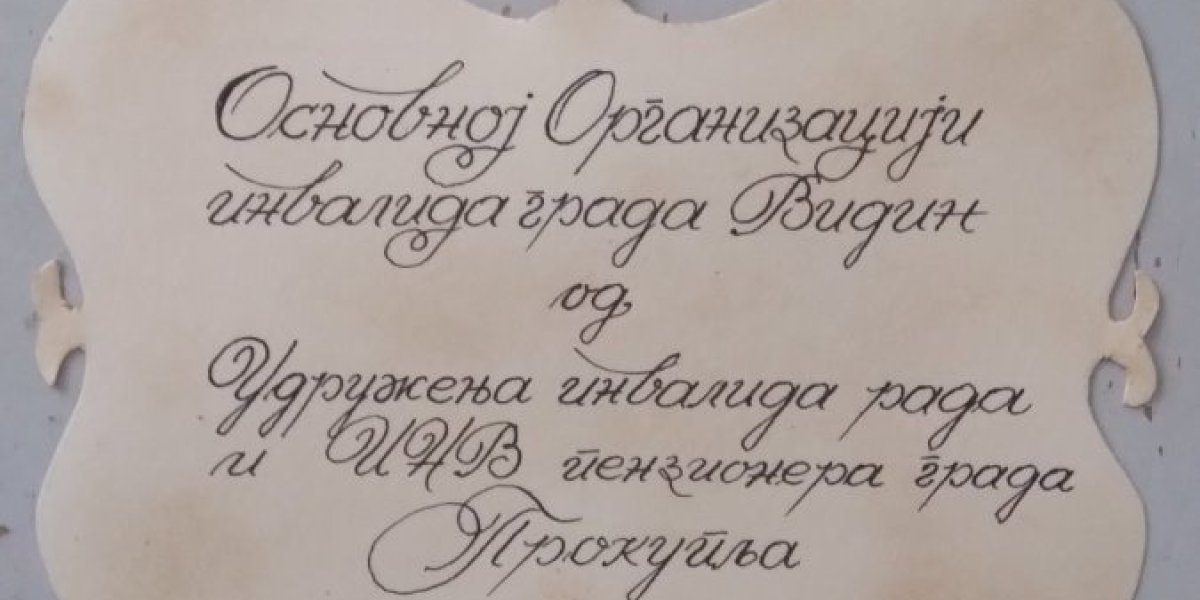 Основној Организацији
инвалида града Видин
од
Удружења инвалида рада
и ИНВ пензионера града
Прокупља